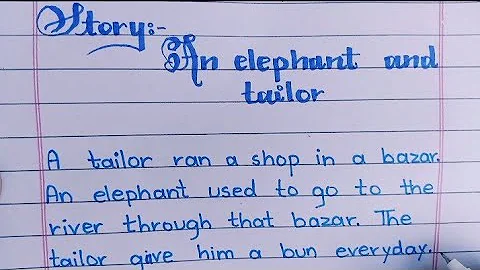 Story:-
An elephant and
tailor
A tailor ran a shop in a bazar.
An elephant used to go to the
river through that bazar. The
tailor give him a bun everyday.